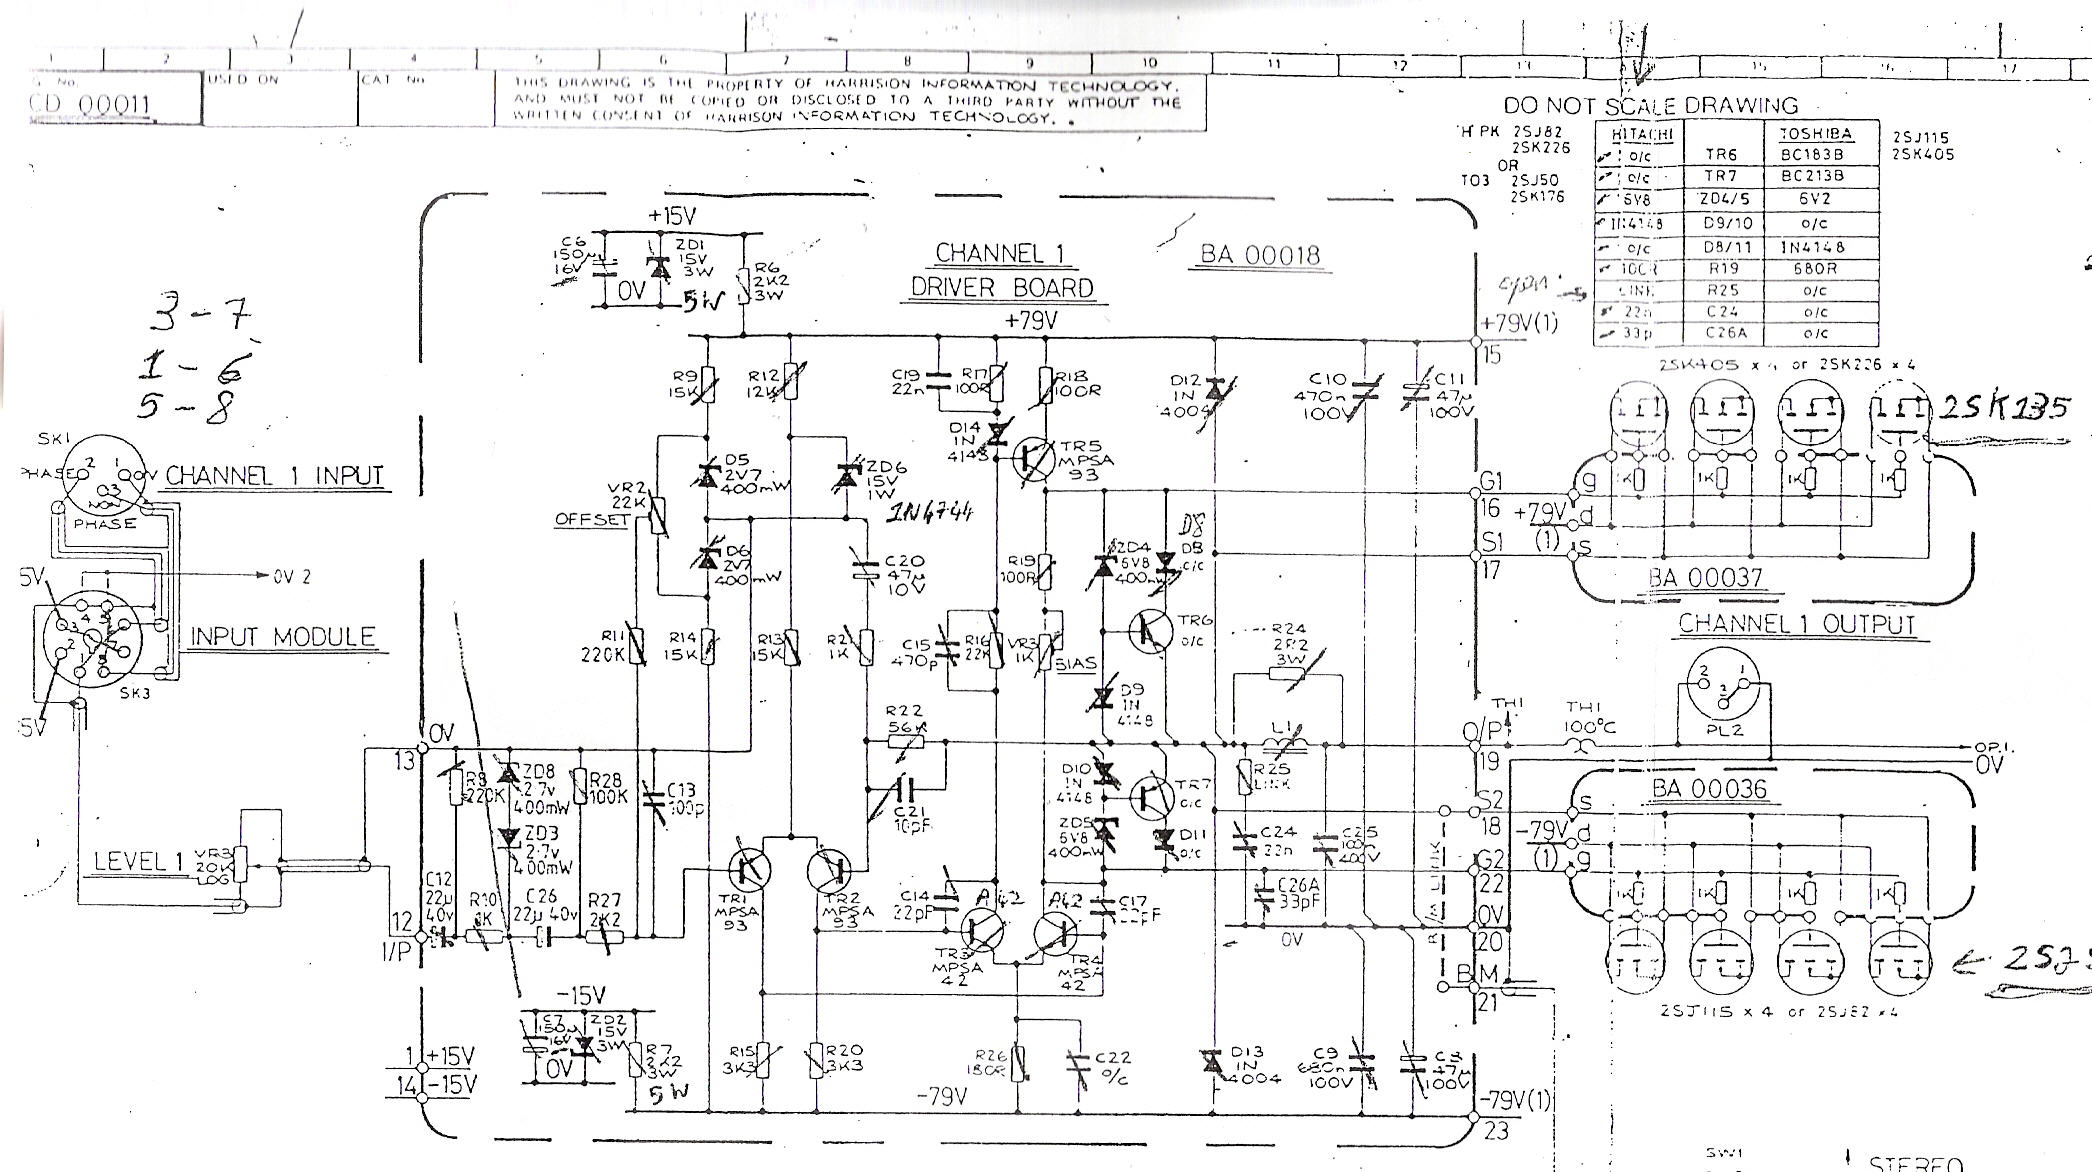 1 2 3 4 5 6 7 8 9 10 11 12 13 15 16 17
G. No.
CD 00011
USED ON
CAT No
THIS DRAWING IS THE PROPERTY OF HARRISION INFORMATION TECHNOLOGY.
AND MUST NOT BE COPIED OR DISCLOSED TO A THIRD PARTY WITHOUT THE
WRITTEN CONSENT OF HARRISON INFORMATION TECHNOLOGY.
DO NOT SCALE DRAWING
H PK 2SJ82
2SK226
OR
TO3 2SJ50
2SK176
HITACHI TOSHIBA
o/c TR6 BC183B
o/c TR7 BC213B
6V8 ZD4/5 6V2
1N4148 D9/10 o/c
o/c D8/11 1N4148
100R R19 680R
LINK R25 o/c
22n C24 o/c
33p C26A o/c
2SJ115
2SK405
open
2SK405 x 4 or 2SK226 x 4
2SK135
3-7
1-6
5-8
CHANNEL 1
DRIVER BOARD
BA 00018
+15V
C6
150µ
16V
ZD1
15V
3W
0V
5W
R6
2K2
3W
+79V
+79V(1)
15
SK1
PHASE
2
1
0V
3
NON
PHASE
CHANNEL 1 INPUT
5V
0V 2
INPUT MODULE
SK3
R9
15K
R12
12K
C19
22n
R17
100R
R18
100R
D12
1N
4004
C10
470n
100V
C11
47µ
100V
D14
1N
4148
TR5
MPSA
93
D5
2V7
400mW
ZD6
15V
1W
1N4744
VR2
22K
OFFSET
D6
2V7
400mW
C20
47µ
10V
R19
100R
ZD4
6V8
400mW
D8
D8
o/c
G1
16
S1
17
g
+79V
(1)
d
s
1K 1K 1K 1K
BA 00037
CHANNEL 1 OUTPUT
R11
220K
R14
15K
R13
15K
R21
1K
C15
470p
R16
22K
VR3
1K
BIAS
TR6
o/c
R24
2R2
3W
D9
1N
4148
R22
56K
L1
O/P
19
TH1
TH1
100°C
2
1
3
PL2
OP.1.
0V
0V
13
R8
220K
ZD8
2.7v
400mW
R28
100K
C13
100p
C21
10pF
D10
1N
4148
TR7
o/c
R25
LINK
S2
18
-79V
(1)
s
d
g
BA 00036
ZD3
2.7v
400mW
ZD5
6V8
400mW
D11
o/c
C24
22n
C25
100n
400V
R/M LINK
G2
22
LEVEL 1
VR3
20K
LOG
C12
22µ
40v
R10
1K
C26
22µ 40v
R27
2K2
TR1
MPSA
93
TR2
MPSA
93
C14
22pF
A42
A42
C17
22pF
C26A
33pF
1K 1K 1K 1K
12
I/P
TR3
MPSA
42
TR4
MPSA
42
0V
0V
20
BM
21
2SJ115 x 4 or 2SJ82 x 4
-15V
C7
150µ
16V
ZD2
15V
3W
0V
R7
2K2
3W
5W
R15
3K3
R20
3K3
R26
180R
C22
o/c
D13
1N
4004
C9
680n
100V
47µ
100V
1 +15V
14 -15V
-79V
-79V(1)
23
SW1
STEREO